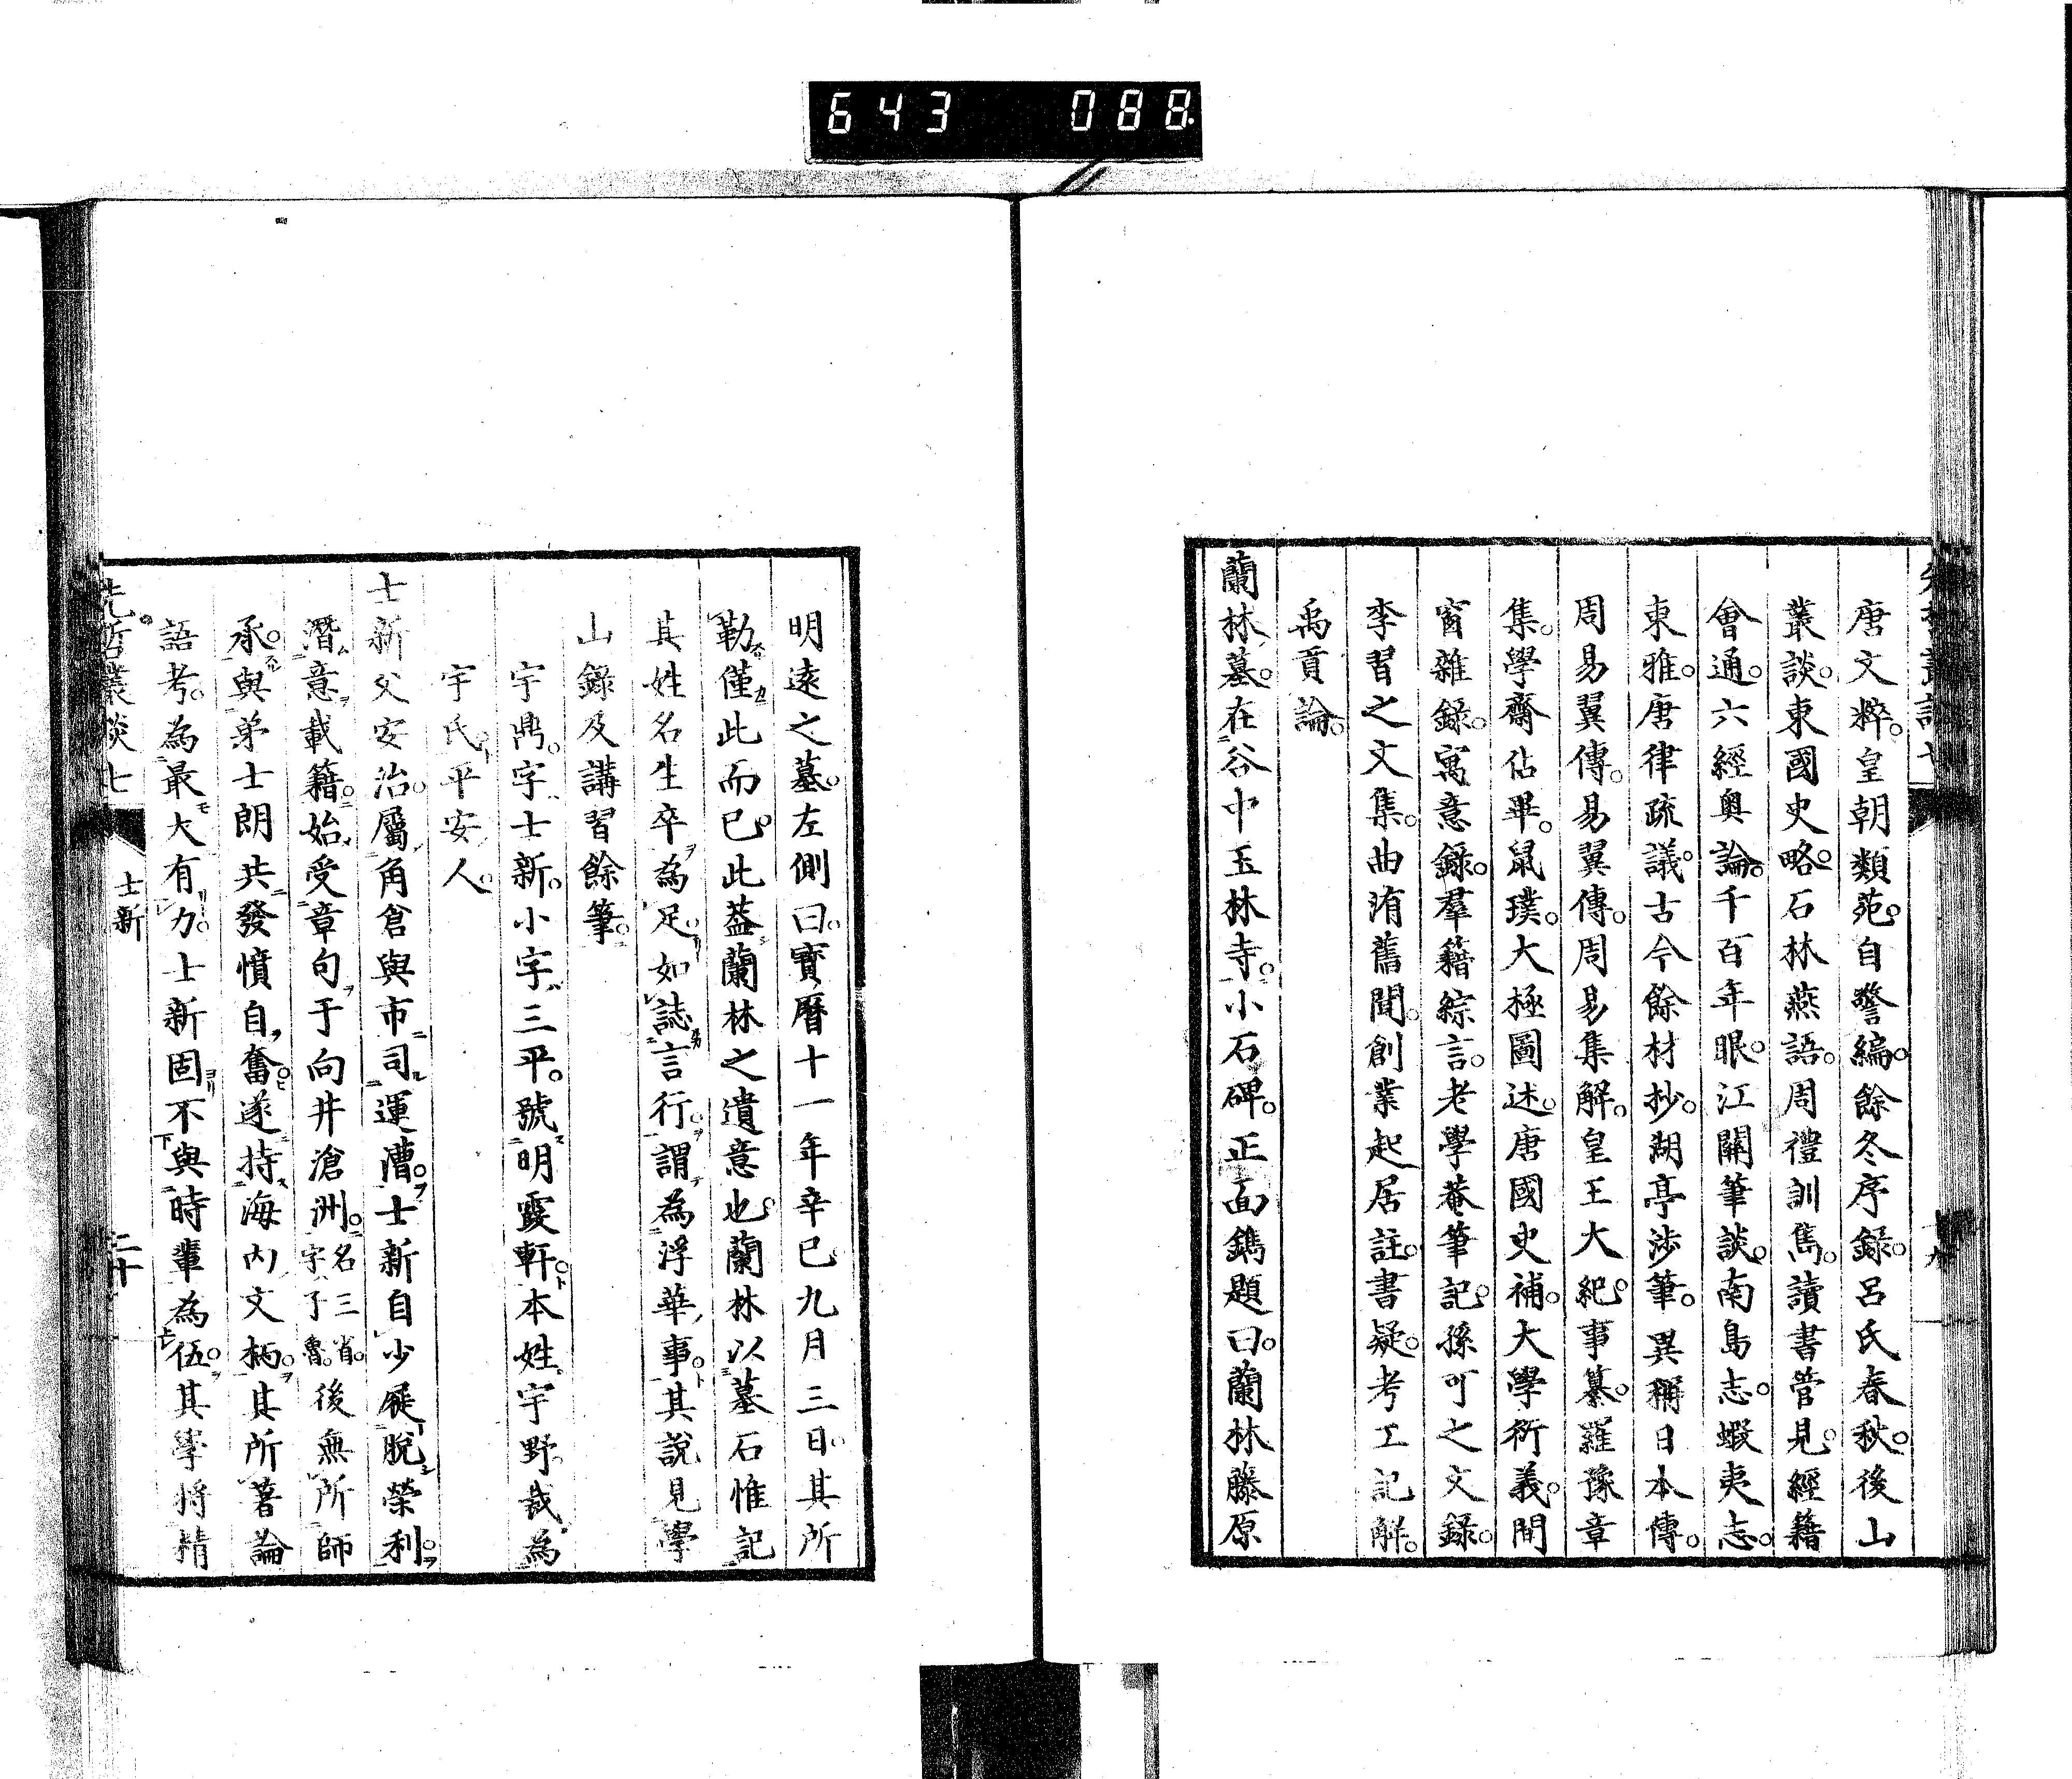 643 088.
唐文粹。皇朝類苑。自警編。餘冬序錄。呂氏春秋。後山
叢談。東國史略。石林燕語。周禮訓雋。讀書管見。經籍
會通。六經奥論。千百年眼。江關筆談。南島志。蝦夷志。
東雅。唐律疏議。古今餘材抄。湖亭渉筆。異稱日本傳。
周易翼傳。易翼傳。周易集解。皇王大紀。事纂。羅豫章
集。學齋佔畢。鼠璞。大極圖述。唐國史補。大學衍義。間
窗雜錄。寓意錄。羣籍綜言。老學菴筆記。孫可之文錄。
李習之文集。曲洧舊聞。創業起居註。書疑。考工記解。
禹貢論。
蘭林墓。在谷中玉林寺。小石碑。正面鐫題曰。蘭林藤原
明遠之墓。左側曰。寶曆十一年辛巳九月三日。其所
勒僅此而已。此葢蘭林之遺意也。蘭林以墓石惟記
其姓名生卒為足。如誌言行。謂為浮華事。其說見學
山錄及講習餘筆。
宇鼎。字士新。小字三平。號明霞軒。本姓宇野。哉為
宇氏。平安人。
士新父安治。屬角倉與市司運漕。士新自少屣脫榮利。
潛意載籍。始受章句于向井滄洲。名三省。字了魯。後無所師
承。與弟士朗共發憤自奮。遂持海内文柄。其所著論
語考。為最大有力。士新固不與時輩為伍。其學將精
先哲叢談七 士新 二十